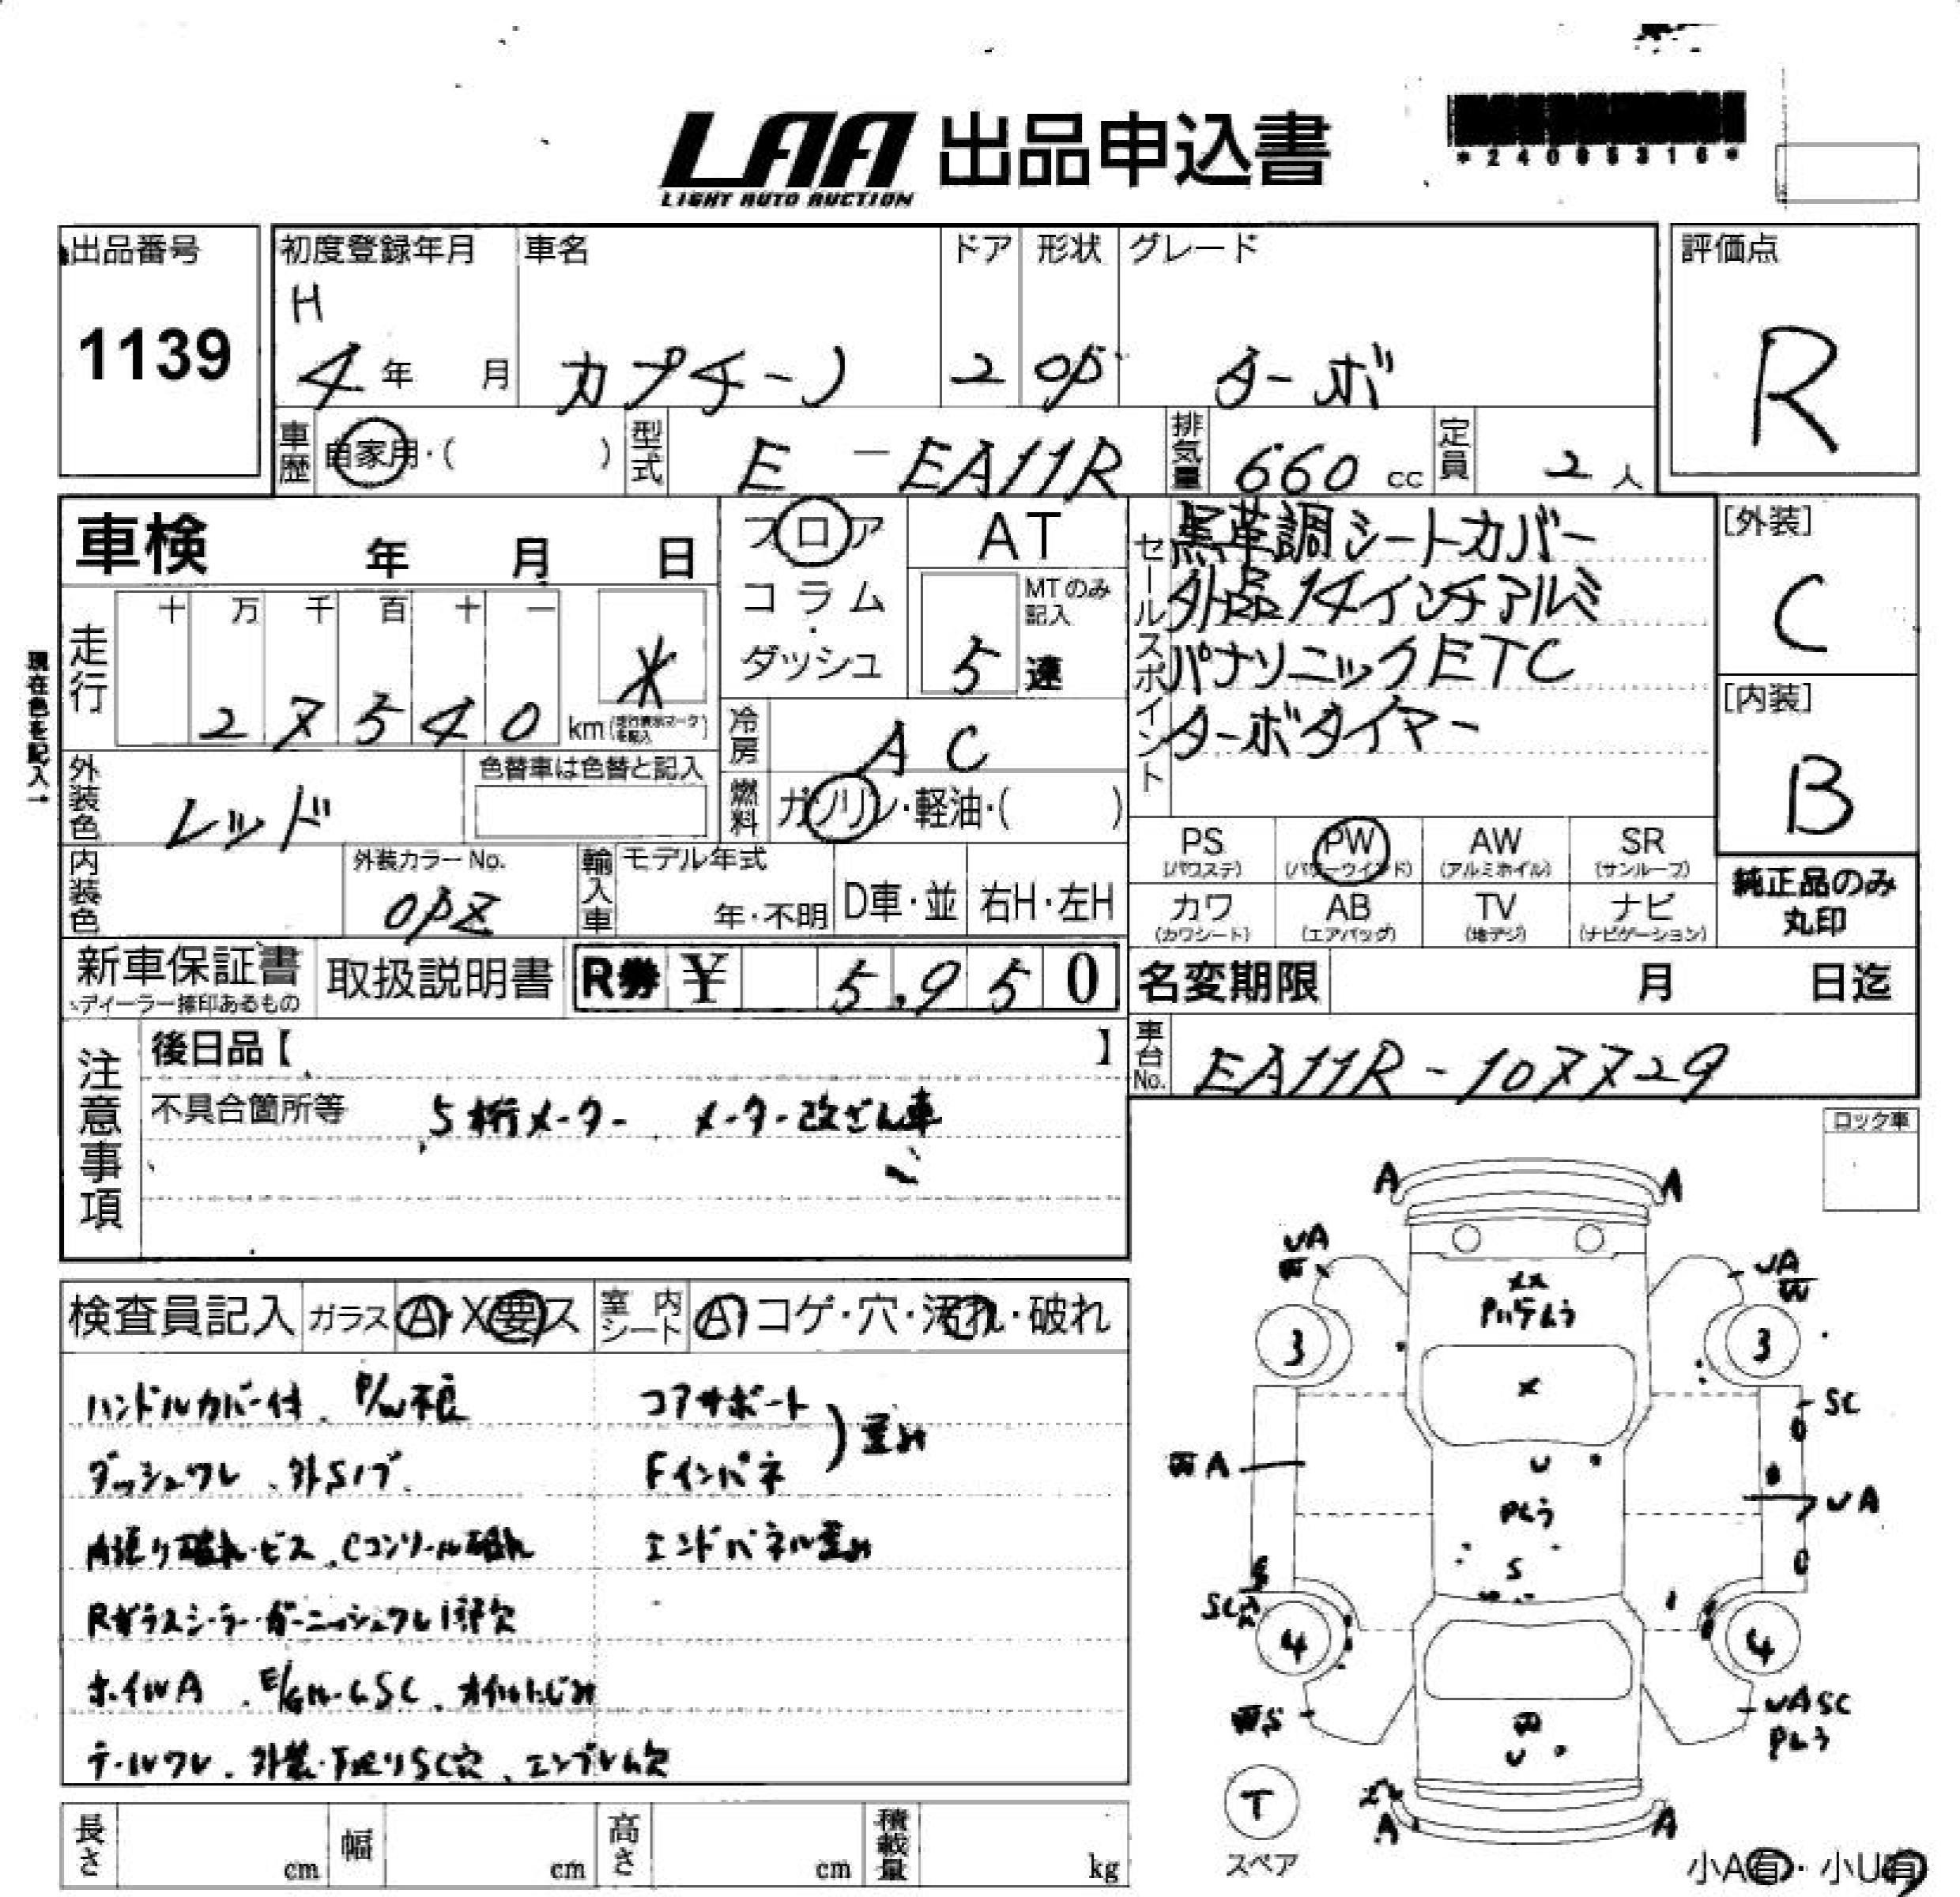 LAA 出品申込書
LIGHT AUTO AUCTION
出品番号
1139
初度登録年月 車名 ドア 形状 グレード
H
4年 月 カプチーノ 2 OP ターボ
評価点
R
車歴 自家用・( ) 型式 E - EA11R 排気量 660 cc 定員 2人
車検 年 月 日
フロア
コラム
・
ダッシュ
AT
MTのみ記入
5速
セールスポイント
黒革調シートカバー
外品14インチアルミ
パナソニックETC
ターボタイマー
[外装]
C
[内装]
B
現在色を記入→
走行 十 万 千 百 十 一
27540 km *
冷房 AC
燃料 ガソリン・軽油・( )
外装色 レッド
色替車は色替と記入
内装色
外装カラーNo.
0PZ
輸入車 モデル年式
年・不明 D車・並 右H・左H
PS PW AW SR
(パワステ) (パワーウインド) (アルミホイル) (サンルーフ)
カワ AB TV ナビ
(カワシート) (エアバッグ) (地デジ) (ナビゲーション)
純正品のみ
丸印
新車保証書 取扱説明書 R券 ¥ 5,950
名変期限 月 日迄
車台No. EA11R-107729
注意事項
後日品【 】
不具合箇所等 5桁メーター メーター改ざん車
ロック車
検査員記入 ガラス A・X要ス 室内シート A コゲ・穴・汚れ・破れ
ハンドルカバー付、P/W不良 コアサポート
ダッシュワレ、外Sノブ Fインパネ ) 歪み
内張り破れ・ビス、Cコンソール破れ エンドパネル歪み
Rガラスシーラー・ガーニッシュワレ1部欠
ホイルA、E/GルームSC、オイルにじみ
テールワレ、外装・下廻りSC穴、エンブレム欠
A A
UA UA
XX
3 3
X
SC
A
U
UA
Pムラ
S
SC
4 4
S
UASC
Pムラ
U
T
スペア
A A
小A有・小U有
長さ cm 幅 cm 高さ cm 積載量 kg